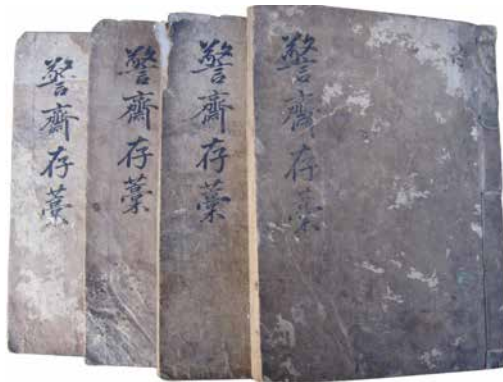 警齋存藁
警齋存藁
警齋存藁
警齋存藁